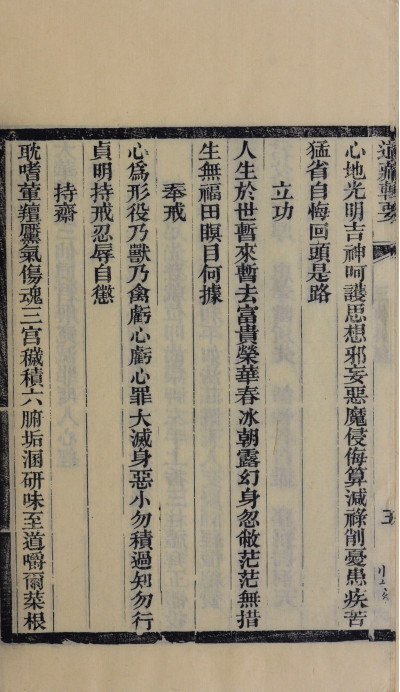 道藏輯要
心地光明吉神呵護思想邪妄惡魔侵侮算減祿削憂患疾苦
猛省自悔回頭是路
立功
人生於世暫來暫去富貴榮華春冰朝露幻身忽敝茫茫無措
生無福田瞑目何據
奉戒
心爲形役乃獸乃禽虧心虧心罪大滅身惡小勿積過知勿行
貞明持戒忍辱自懲
持齋
耽嗜葷羶靨氣傷魂三宫穢積六腑垢溷研味至道嚼爾菜根